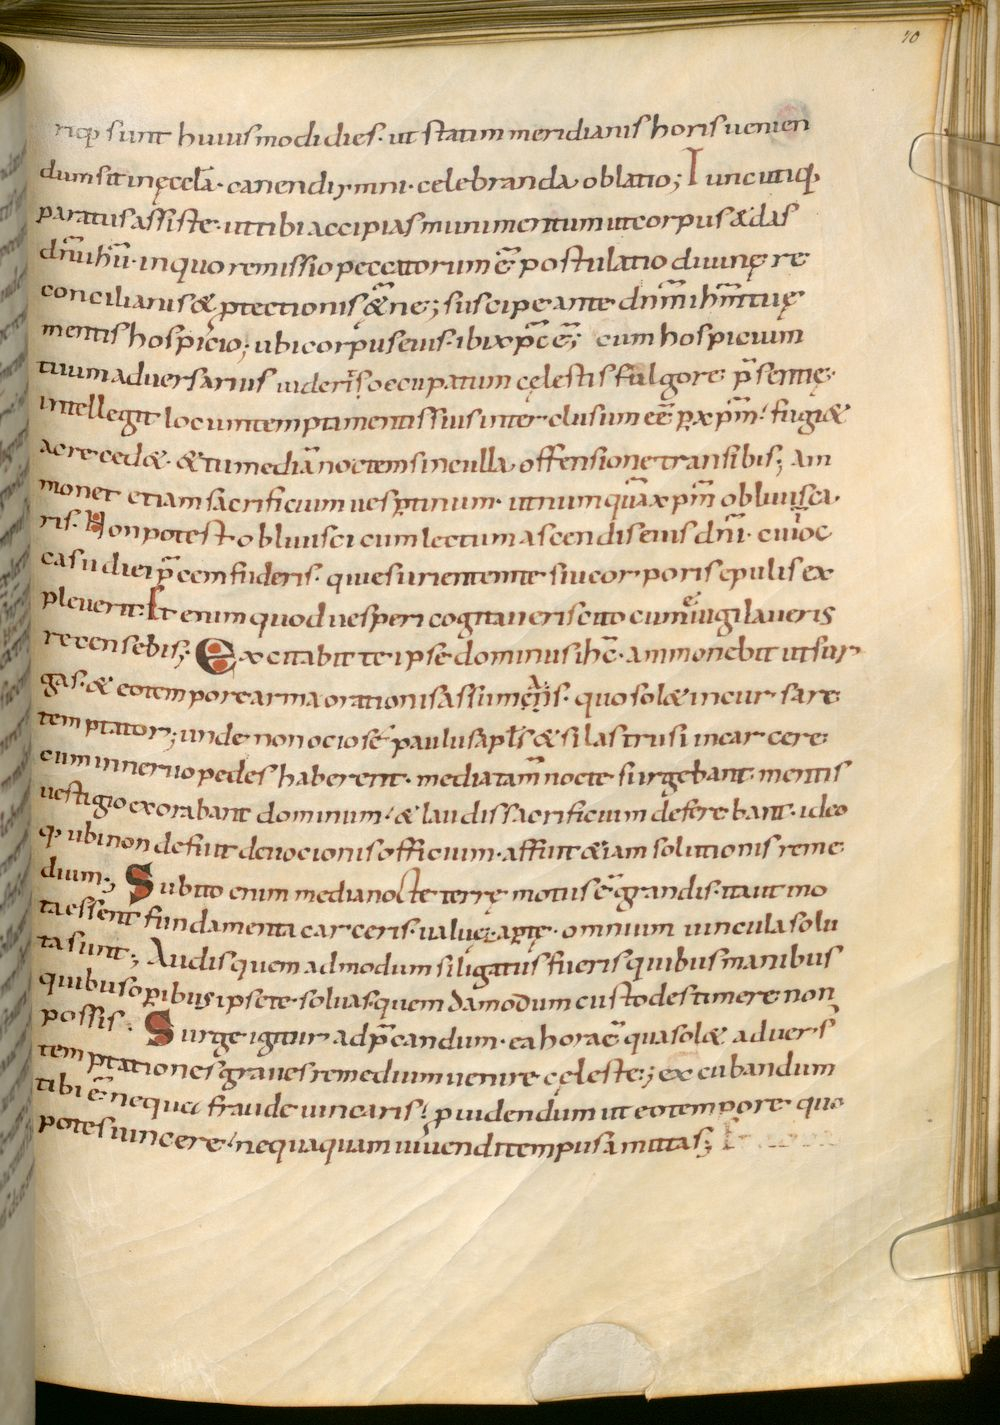 70
riq; sunt huiusmodi dies· ut statim meridianis horis uenien
dum sit in ęccl̄a· canendi ymni· celebranda oblatio; Tunc utiq;
paratus assiste· ut tibi accipias munimentum ut corpus & das
dn̄i ih̄u· in quo remissio peccatorum ē postulatio diuinę re
conciliationis & ptectionis ęt̄ne; suscipe ante dn̄m ih̄m tuę
mentis hospicio; ubi corpus eius· ibi xp̄c ē; cum hospicium
tuum aduersarius uiderit occupatum cęlestis fulgore p̄sentię·
intellegit locum temptamentis suis interclusum eē p xp̄m· fugi&
ac reced&· & tu mediā noctem sine ulla offensione transibis; am
monet etiam sacrificium uesptinum· ut numquā xp̄m obliuisca
ris· Non potest obliuisci cum lectum ascendis eius dn̄i· cui oc
casu diei p̄cem fuderis· qui esurientem te sui corporis epulis ex
pleuerit· It enim quod uesperi cogitaueris cito cum euigilaueris
recensebis; Excitabit te ipse dominus ih̄c· ammonebit ut sur
gas· & eo tempore arma orationis assumens· quo sol& incursare
temptator; unde non ociose paulus apl̄s & silas trusi in carcere
cum in neruo pedes haberent· mediā tam̄ nocte surgebant mentis
uestigio exorabant dominum· & laudis sacrificium deferebant· ideo
q; ubi non defuit deuocionis officium· affuit &iam solutionis reme
dium; Subito enim media nocte terrę motus ē grandis· ita ut mo
ta essent fundamenta carceris· ualuę aptę· omnium uincula solu
ta sunt; Audis quemadmodum si ligatus fueris quibus manibus
quibus opibus ipse te soluas quemadamodum custodes timere non
possis· Surge igitur ad p̄candum· ea hora ē qua sol& aduers̄
temptationes graues remedium uenire cęleste; excubandum
tibi ē ne qua fraude uincaris· puidendum ut eo tempore quo
potes uincere· nequaquam uiuendi tempus amittas;